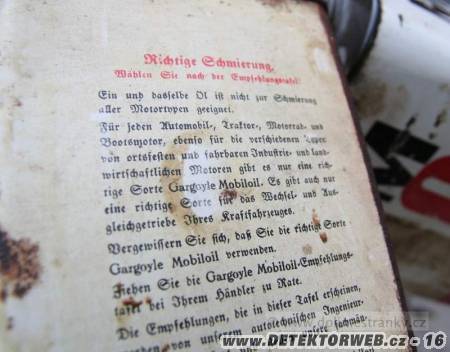 Richtige Schmierung.
Wählen Sie nach der Empfehlungstafel!
Ein und dasselbe Öl ist nicht zur Schmierung
aller Motortypen geeignet.
Für jeden Automobil-, Traktor-, Motorrad- und
Bootsmotor, ebenso für die verschiedenen Typen
von ortsfesten und fahrbaren Industrie- und land-
wirtschaftlichen Motoren gibt es nur eine rich-
tige Sorte Gargoyle Mobiloil. Es gibt auch nur
eine richtige Sorte für das Wechsel- und Aus-
gleichgetriebe Ihres Kraftfahrzeuges.
Vergewissern Sie sich, daß Sie die richtige Sorte
Gargoyle Mobiloil verwenden.
Ziehen Sie die Gargoyle Mobiloil-Empfehlungs-
tafel bei Ihrem Händler zu Rate.
Die Empfehlungen, die in dieser Tafel erscheinen,
werden von unserem autotechnischen Ingenieur-
fachmän-
WWW.DETEKTORWEB.CZ © 16